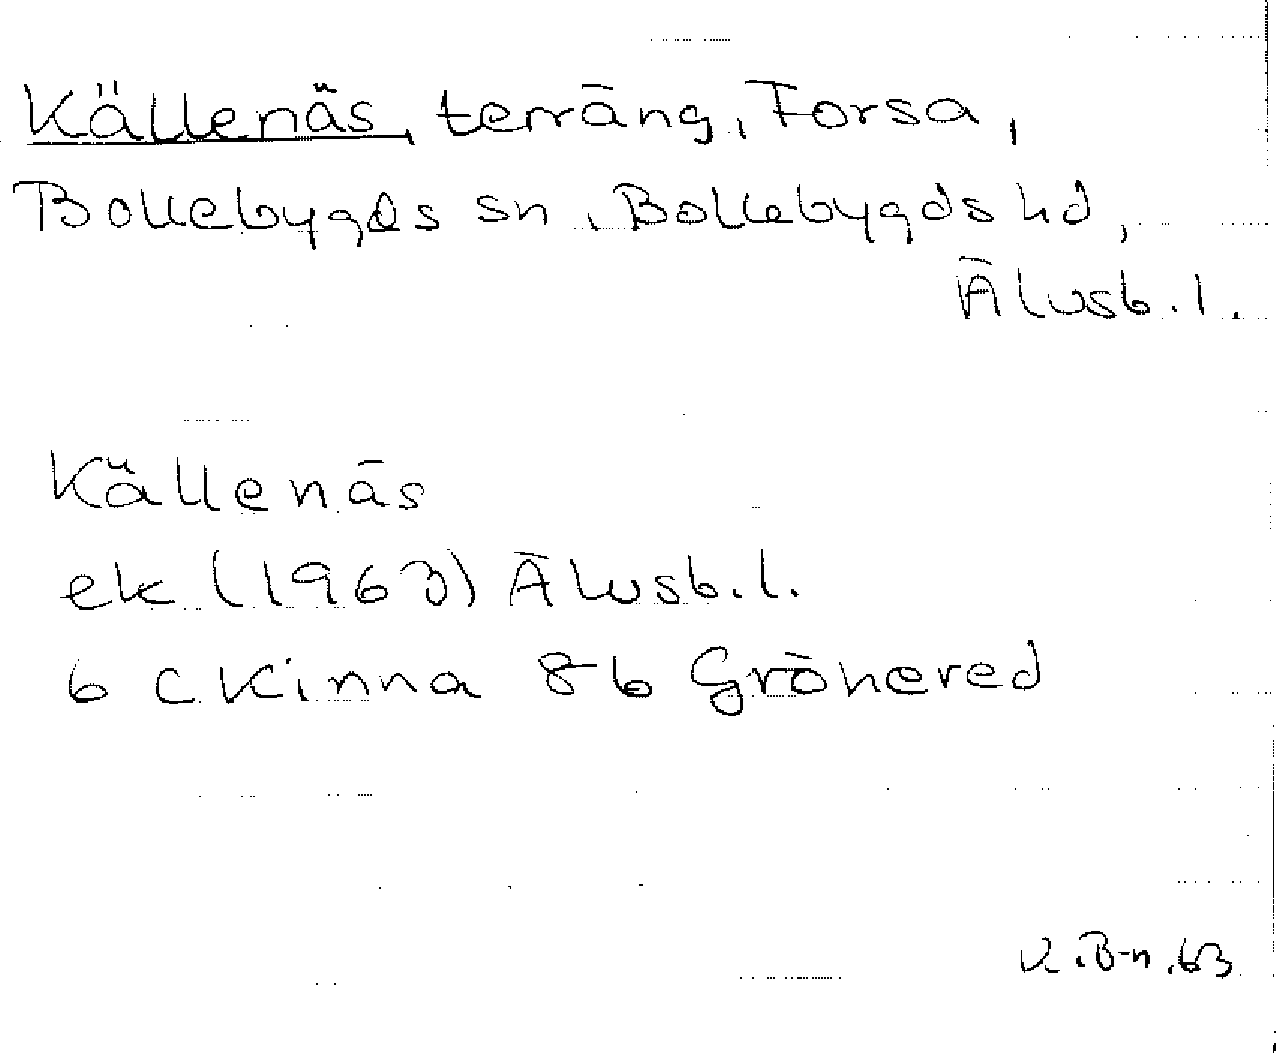 Källenäs, terräng, Forsa,
Bollebygds sn, Bollebygds hd,
Älvsb.l.
Källenäs
ek (1963) Älvsb.l.
6 C Kinna 8b Grönered
K.B-n.63